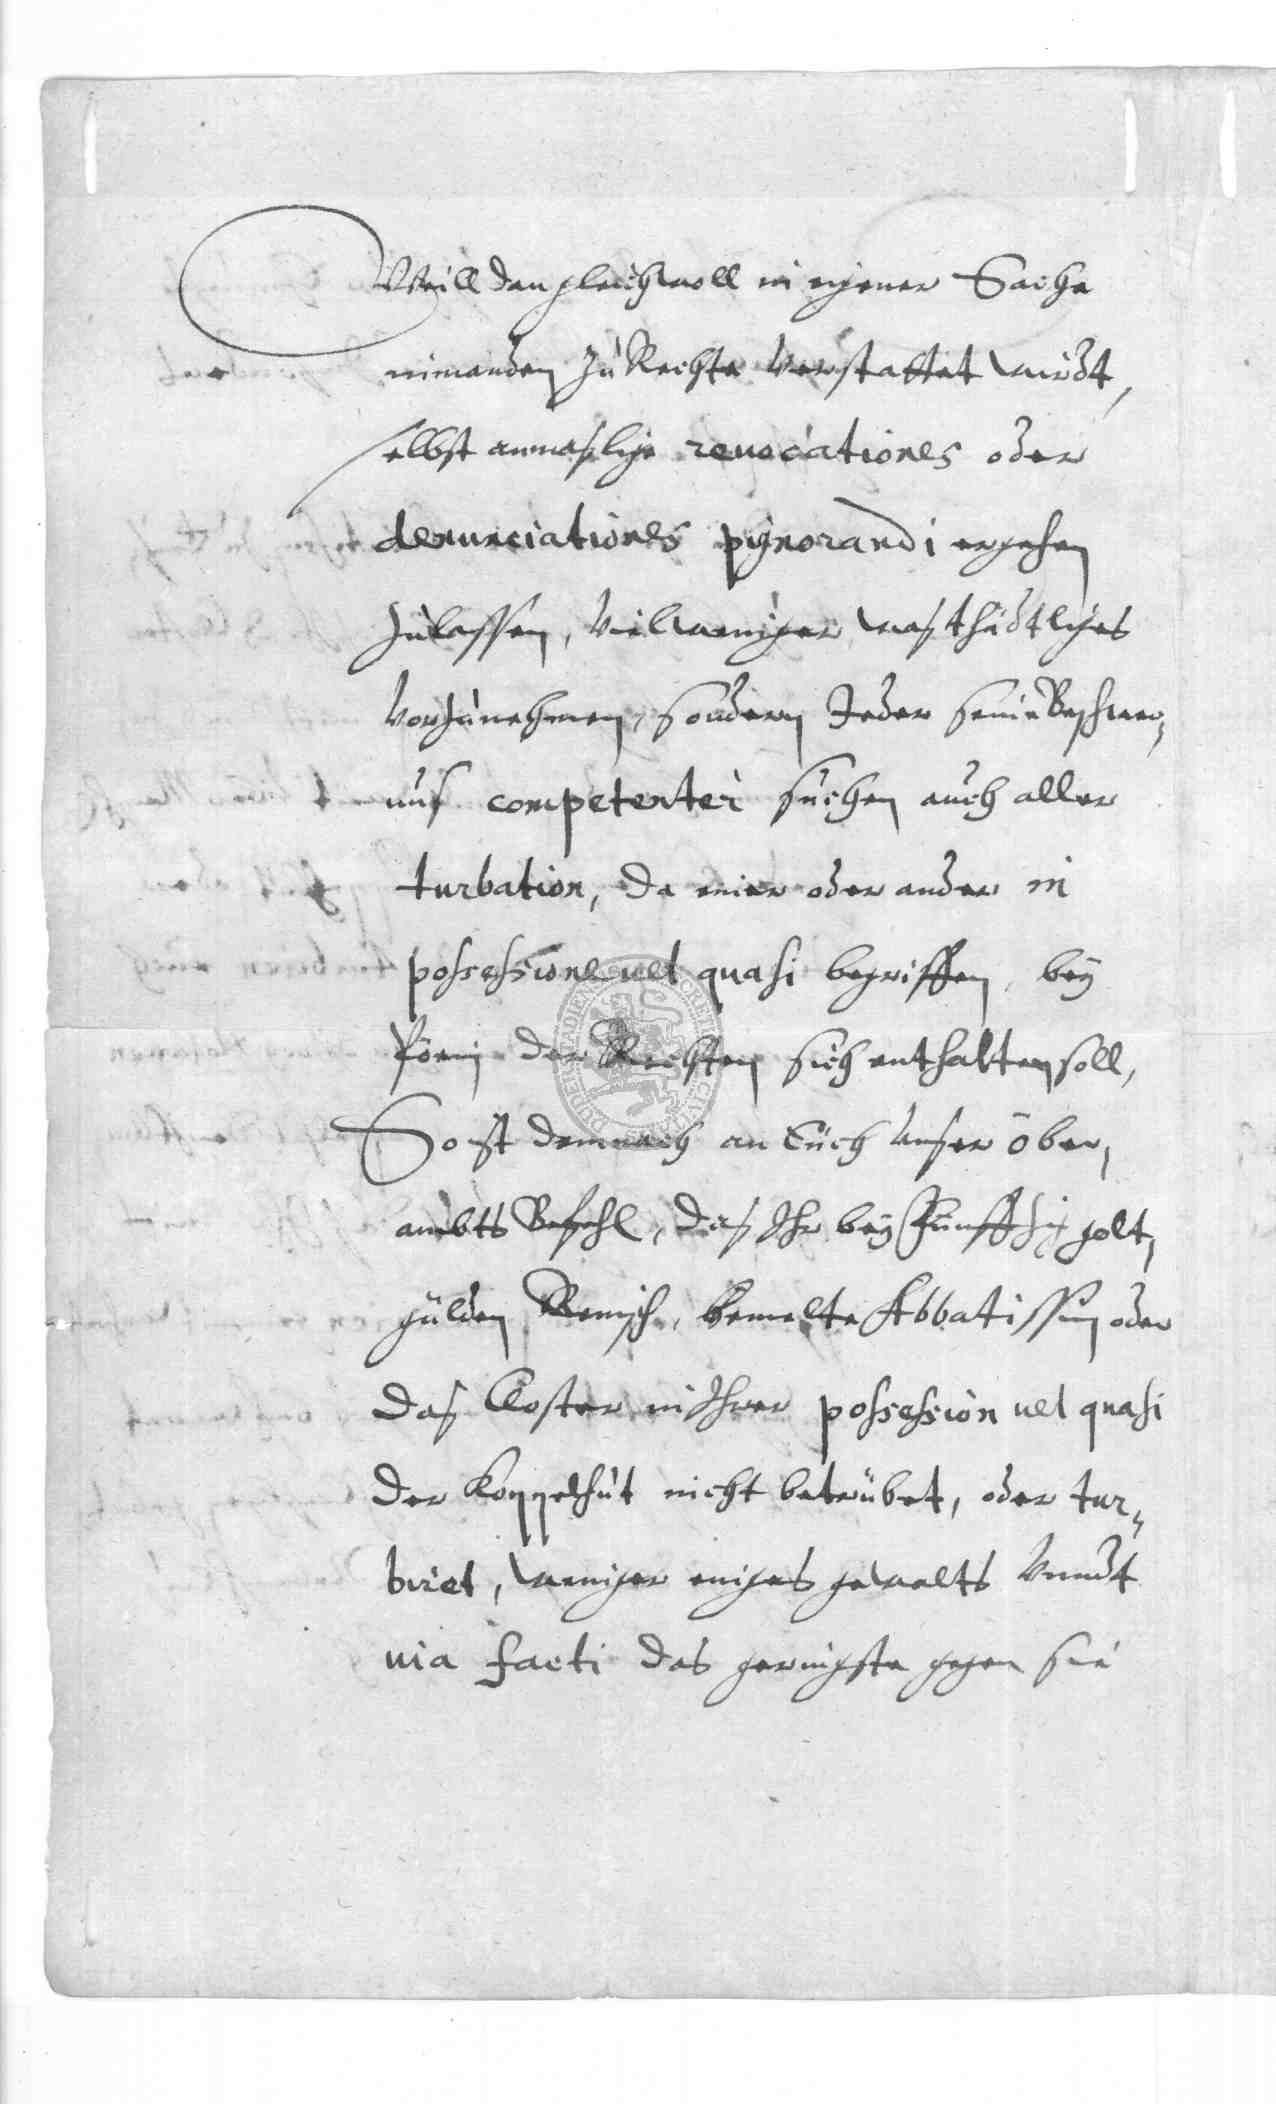 Weill dan gleichwoll in eigener Sache
nimanden zu Rechte verstattet wirdt,
selbst anmaßlige revocationes oder
denunciationes pignorandi ergehen
zulassen, vielweniger waß thädtliges
vorzunehmen, sondern Jeder seine Beschwer„
nus competenter suchen auch aller
turbation, da einer oder ander in
possessione vel quasi begriffen, bey
Poen der Rechten sich enthalten soll,
So ist demnach an Euch unser Ober„
ambts Befehl, daß Ihr bey Funfftzig golt„
gülden Reinisch, bemelte Abbatissin oder
daß Closter in Ihrer possession vel quasi
der Koppelhut nicht betrübet, oder tur„
biret, weniger einiges gewalts unndt
via facti das geringste gegen sie